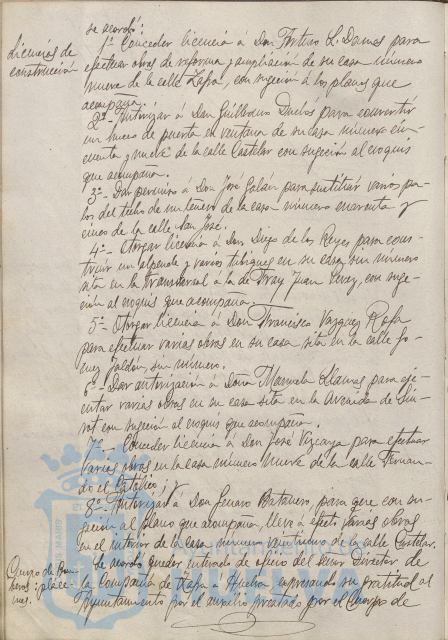 se acordó:
licencias de
construcción
1º Conceder licencia á Don Arturo L. Damas para
efectuar obras de reforma y ampliación de su casa número
nueve de la calle Zafra, con sugeción á los planos que
acompaña.
2º- Autorizar á Don Guillermo Duclós para convertir
un hueco de puerta en ventana de su casa número cin-
cuenta y nueve de la calle Castelar con sugeción al croquis
que acompaña.
3º- Dar permiso á Don José Galán para sustituir varios pa-
los del techo de un tenero de la casa número cuarenta y
cinco de la calle San José.
4º- Otorgar licencia á Don Diego de los Reyes para cons-
truir un alpende y varios tabiques en su casa sin número
sita en la transversal á la de Fray Juan Perez, con suge-
ción al croquis que acompaña.
5º- Otorgar licencia á Don Francisco Vazquez Rofa
para efectuar varias obras en su casa sita en la calle Go-
mez Jaldón, sin número.
6º- Dar autorización á Doña Manuela Llamas para eje-
cutar varias obras en su casa sita en la Avenida de
con sugeción al croquis que acompaña.
7º- Conceder licencia á Don José Vizcaya para efectuar
varias obras en la casa número nueve de la calle Fernan-
do el Católico; y
8º- Autorizar á Don Genaro Batanero, para que con su-
geción al plano que acompaña, lleve á efecto varias obras
en el interior de la casa número veintiuno de la calle Castelar.
Cuerpo de Bom-
beros:
Se acordó quedar enterado de oficio del señor Director de
la Compañía de Zafra á Huelva expresando su gratitud al
Ayuntamiento por el auxilio prestado por el Cuerpo de
Ayuntamiento de
HUELVA